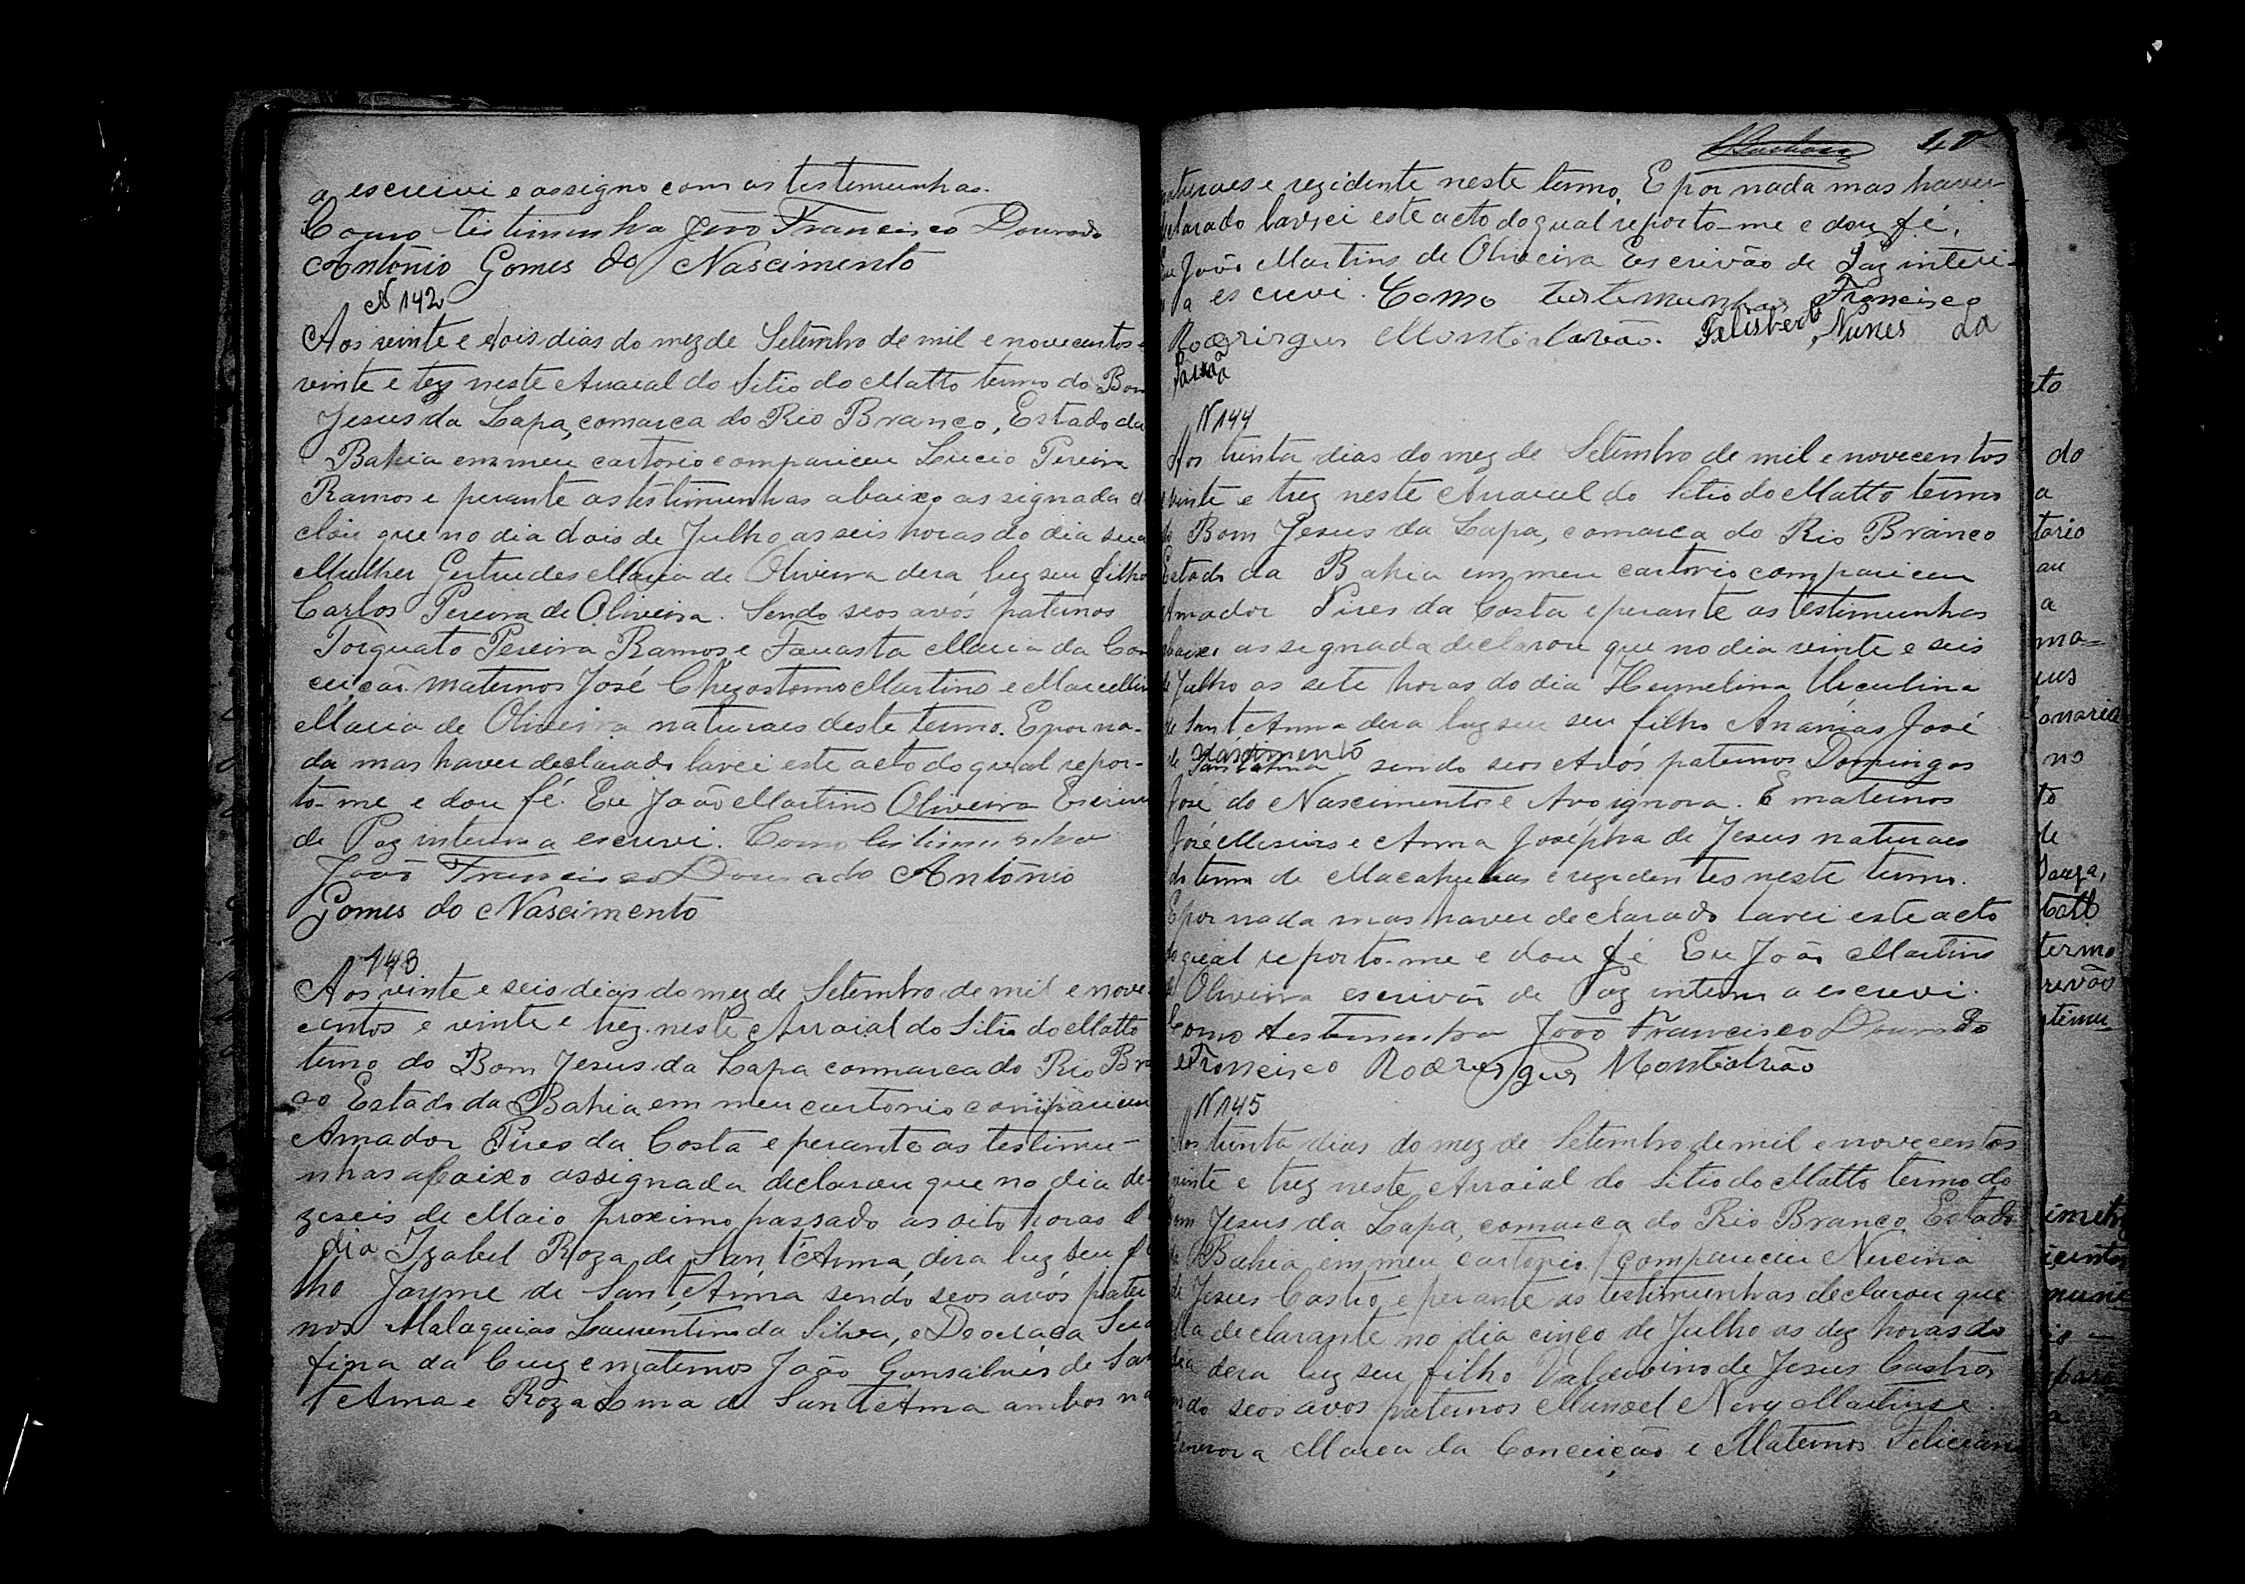 a escrevi e assigno com as testemunhas.
Como testimunha João Francisco Dourado
Antônio Gomes do Nascimento
N 142
Aos vinte e dois dias do mez de Setembro de mil e novecentos e
vinte e trez neste Arraial do Sitio do Matto termo do Bom
Jesus da Lapa, comarca do Rio Branco, Estado da
Bahia em meu cartorio compariceu Lucio Pereira
Ramos e perante as testimunhas abaixo assignada de
clou que no dia dois de Julho as seis horas do dia sua
Mulher Gertrudes Maria de Oliveira dera luz seu filho
Carlos Pereira de Oliveira. Sendo seos avós paternos
Torquato Pereira Ramos e Fausta Maria da Con
ceição. maternos José Chizostomo Martins e Marcellina
Maria de Oliveira naturaes deste termo. E por na-
da mas haver declarado lavrei este acto do qual repor-
to-me e dou fé. Eu João Martins Oliveira Escrivão
de Paz interino a escrevi. Como testimunha
João Francisco Dourado Antônio
Gomes do Nascimento
143
Aos vinte e seis dias do mez de Setembro de mil e nove
centos e vinte e trez. neste Arraial do Sitio do Matto
termo do Bom Jesus da Lapa comarca do Rio Bran
co Estado da Bahia em meu cartorio compariceu
Amador Pires da Costa e perante as testimu-
nhas abaixo assignada declarou que no dia de-
zeseis de Maio proximo passado as oito horas do
dia Izabel Roza de Sant'Anna, dera luz seu fi
lho Jayme de Sant'Anna sendo seos avós pater
nos Malaquias Laurentino da Silva, e Deoclacia Sera
fina da Cruz e maternos João Gonsalves de San
t'Anna e Roza Lma de Sant'Anna ambos na
40
naturaes e rezidente neste termo. E por nada mas haver
declarado lavrei este acto do qual reporto-me e dou fé.
Eu João Martins de Oliveira Escrivão de Paz interi-
no a escrevi. Como testemunhas Francisco
Rodrigues Montealvão. Felisberto Nunes da
N 144
Aos trinta dias do mez de Setembro de mil e novecentos
e vinte e trez neste Arraial do Sitio do Matto termo
do Bom Jesus da Lapa, comarca do Rio Branco
Estado da Bahia em meu cartorio compariceu
Amador Pires da Costa e perante as testimunhas
abaixo assignada declarou que no dia vinte e seis
de Julho as sete horas do dia Hermelina Urculina
de Sant'Anna dera luz seu seu filho Ananias José
do Nascimento
de Sant'Anna sendo seos Avós paternos Domingos
José do Nascimento e Avo ignora. E maternos
José Messias e Anna Josépha de Jesus naturaes
do termo de Macahubas e rezidentes neste termo.
E por nada mas haver declarado lavrei este acto
do qual reporto-me e dou fé Eu João Martins
de Oliveira escrivão de Paz interino a escrevi.
Como testemunha João Francisco Dourado
Francisco Rodrigues Montealvão
N 145
Aos trinta dias do mez de Setembro de mil e novecentos
vinte e trez neste Arraial do Sitio do Matto termo do
Bom Jesus da Lapa, comarca do Rio Branco Estado
da Bahia em meu cartorio compariceu Nucina
de Jesus Castro, e perante as testimunhas declarou que
ella declarante no dia cinco de Julho as dez horas do
dia dera luz seu filho Valdivino de Jesus Castro
sendo seos avos paternos Manoel Nery Martins e
Genorora Maria da Conceição e Maternos Feliciano